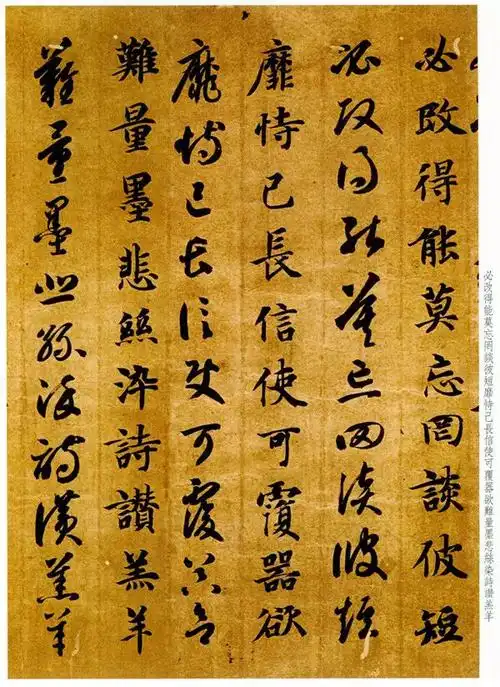 必改得能莫忘罔談彼短靡恃己長信使可覆器欲難量墨悲絲染詩讚羔羊
必改得能莫忘罔談彼短
必改得能莫忘罔談彼短
靡恃己長信使可覆器欲
靡恃己長信使可覆器欲
難量墨悲絲染詩讚羔羊
難量墨悲絲染詩讚羔羊